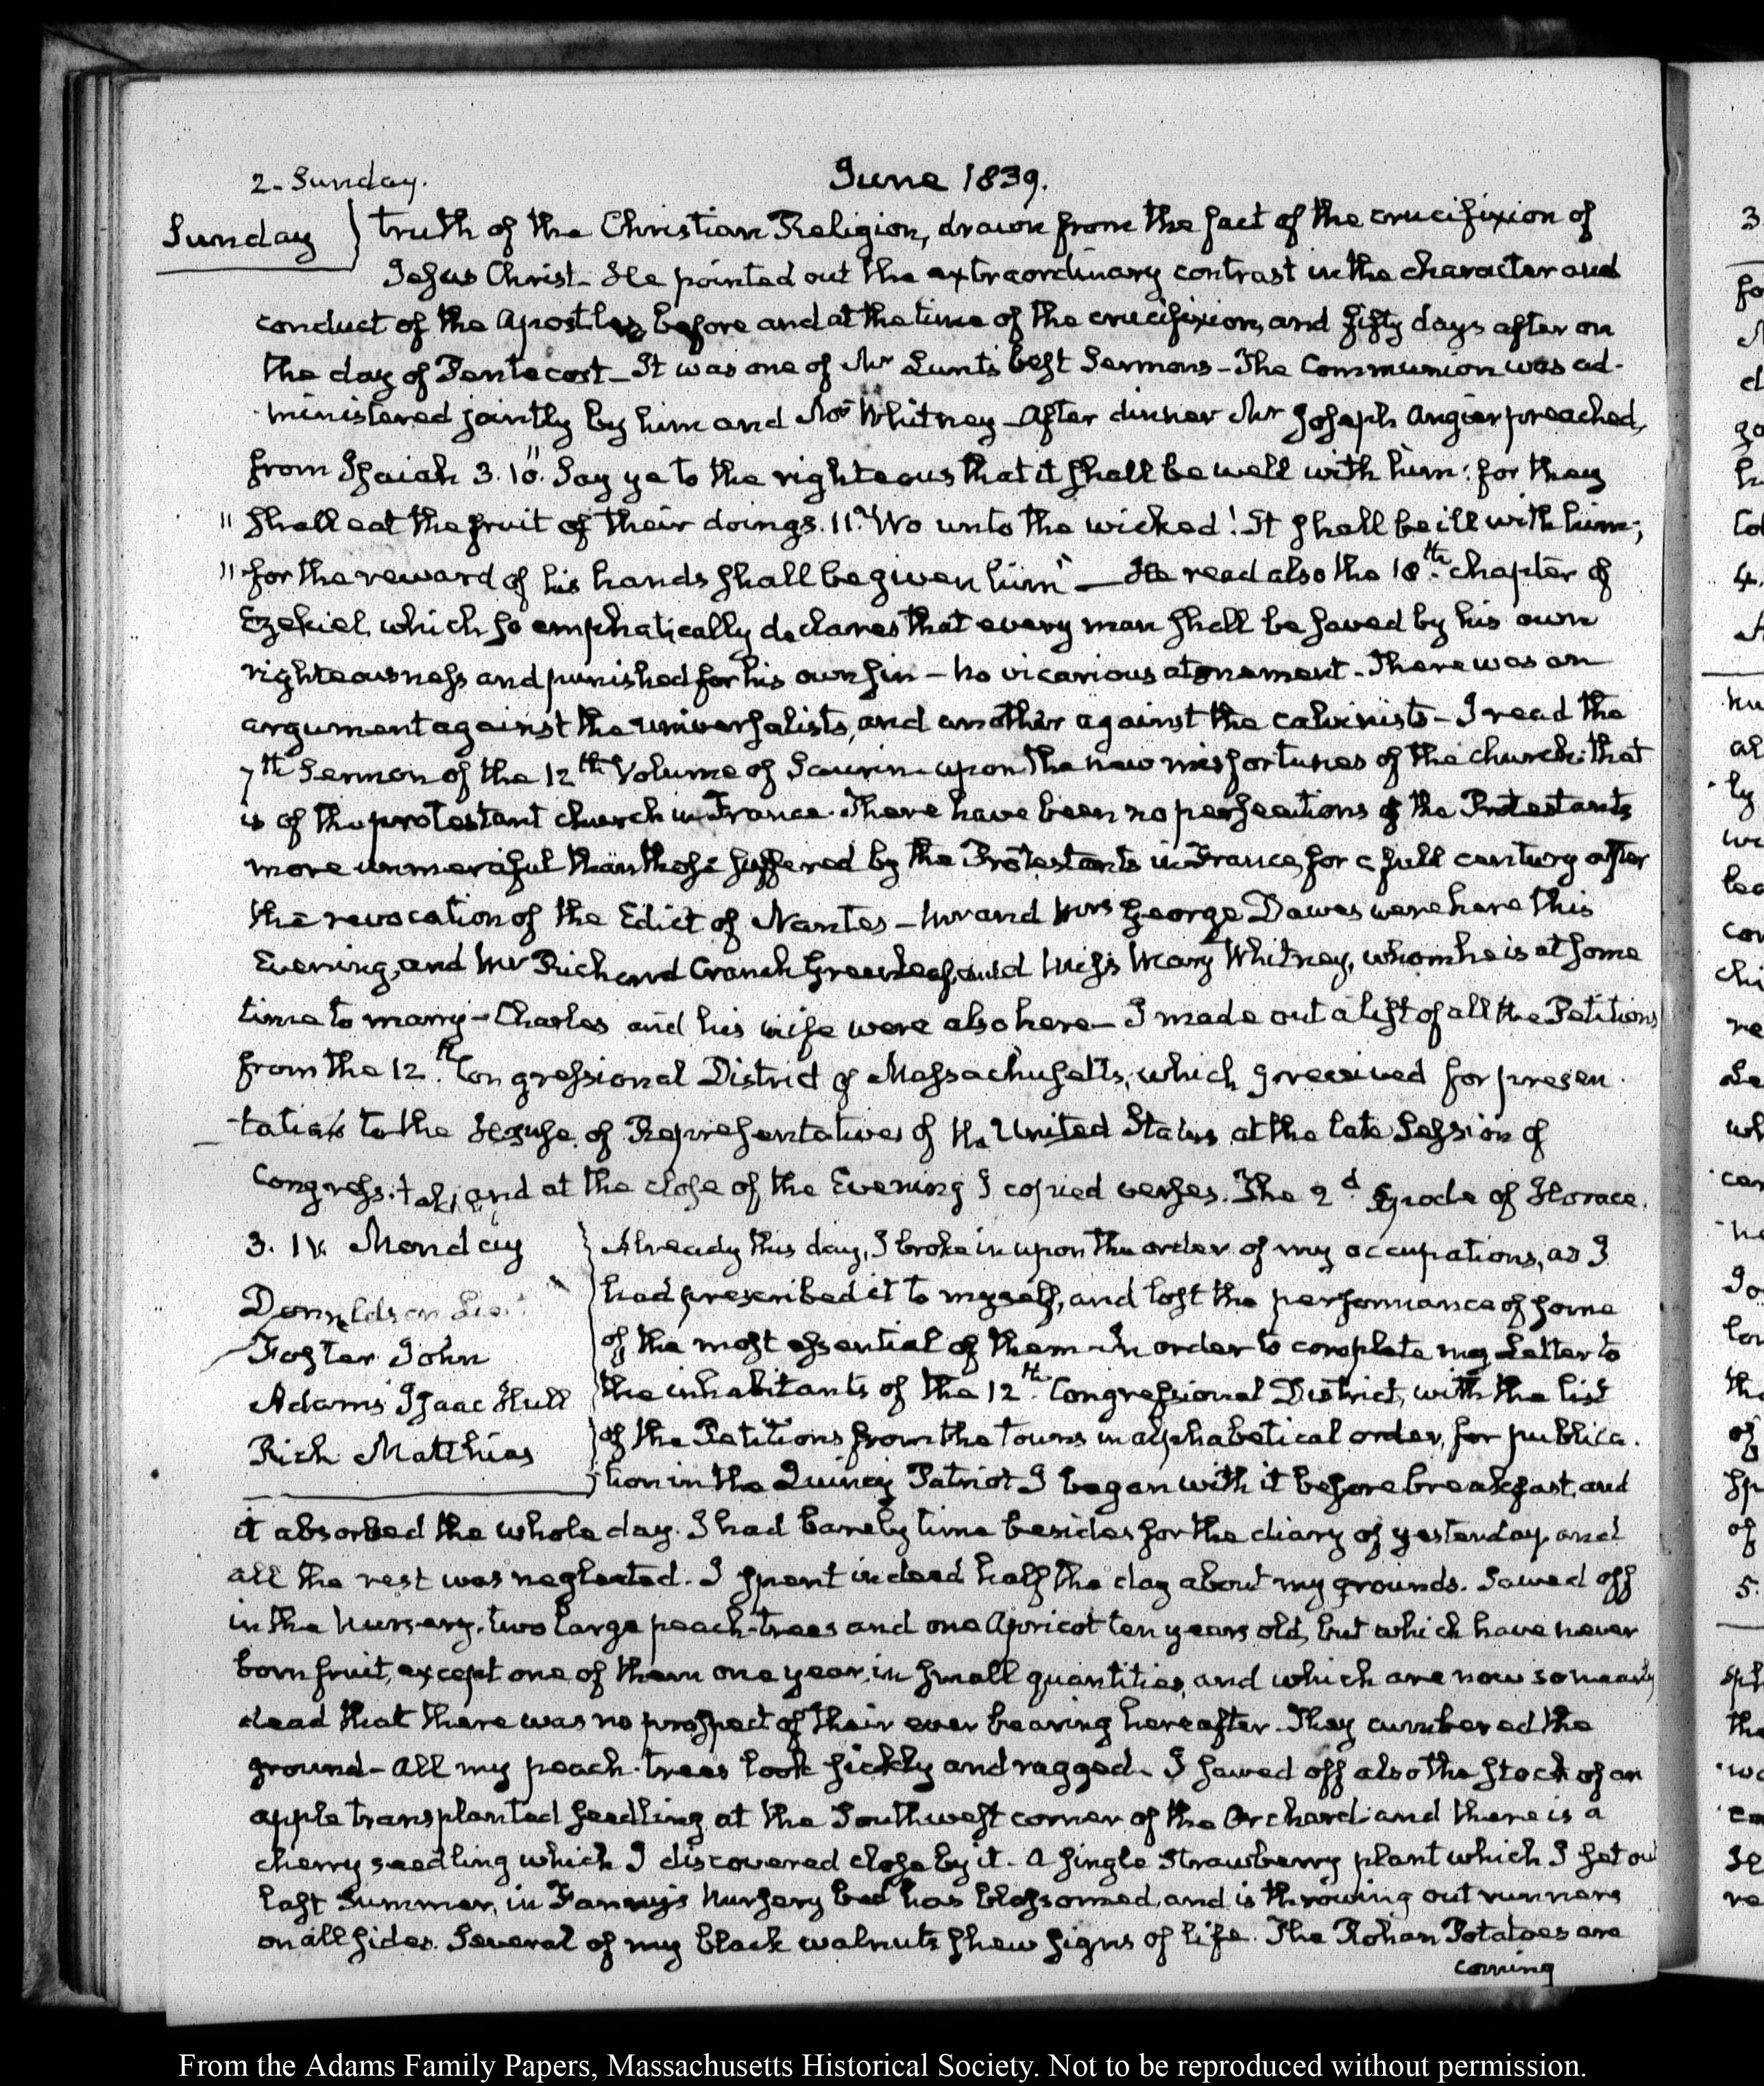 2. Sunday.
June 1839.
Sunday
truth of the Christian Religion, drawn from the fact of the crucifixion of
Jesus Christ- He pointed out the extraordinary contrast in the character and
conduct of the Apostles before and at the time of the crucifixion, and fifty days after on
the day of Pentecost- It was one of Mr Lunt's best Sermons- The Communion was ad-
ministered jointly by him and Mr Whitney- After dinner Mr Joseph Angier preached,
from Isaiah 3. 10. "Say ye to the righteous that it shall be well with him: for they
" shall eat the fruit of their doings. 11. Wo unto the wicked! It shall be ill with him;
" for the reward of his hands shall be given him" — He read also the 18th. chapter of
Ezekiel, which so emphatically declares that every man shall be saved by his own
righteousness and punished for his own sin - no vicarious atonement. There was an
argument against the universalists, and another against the calvinists- I read the
7th Sermon of the 12th Volume of Saurin upon the new misfortunes of the church: that
is of the protestant church in France. There have been no persecutions of the Protestants
more unmerciful than those suffered by the Protestants in France, for a full century after
the revocation of the Edict of Nantes- Mr and Mrs George Dawes were here this
Evening, and Mr Richard Cranch Greenleaf, and Miss Mary Whitney, whom he is at some
time to marry- Charles and his wife were also here- I made out a list of all the Petitions
from the 12th. Congressional District of Massachusetts, which I received for presen
-tation to the House of Representatives of the United States at the late Session of
Congress: and at the close of the Evening I copied verses. The 2d Epode of Horace.
3. IV. Monday
Donaldson
Foster John
Adams Isaac Hull
Rich Matthias
Already this day, I broke in upon the order of my occupations, as I
had prescribed it to myself, and lost the performance of some
of the most essential of them- In order to complete my Letter to
the inhabitants of the 12th. Congressional District, with the list
of the Petitions from the Towns in alphabetical order, for publica-
tion in the Quincy Patriot I began with it before breakfast, and
it absorbed the whole day. I had barely time besides for the diary of yesterday, and
all the rest was neglected. I spent indeed half the day about my grounds. Sawed off
in the Nursery, two large peach-trees and one Apricot ten years old, but which have never
born fruit, except one of them one year, in small quantities, and which are now so nearly
dead that there was no prospect of their ever bearing hereafter. They cumbered the
ground- All my peach-trees look sickly and ragged- I sawed off also the stock of an
apple transplanted seedling at the Southwest corner of the Orchard: and there is a
cherry seedling which I discovered close by it. A single Strawberry plant which I set out
last Summer, in Fanny's Nursery bed has blossomed, and is throwing out runners
on all sides. Several of my black walnuts shew signs of life. The Rohan Potatoes are
coming
From the Adams Family Papers, Massachusetts Historical Society. Not to be reproduced without permission.